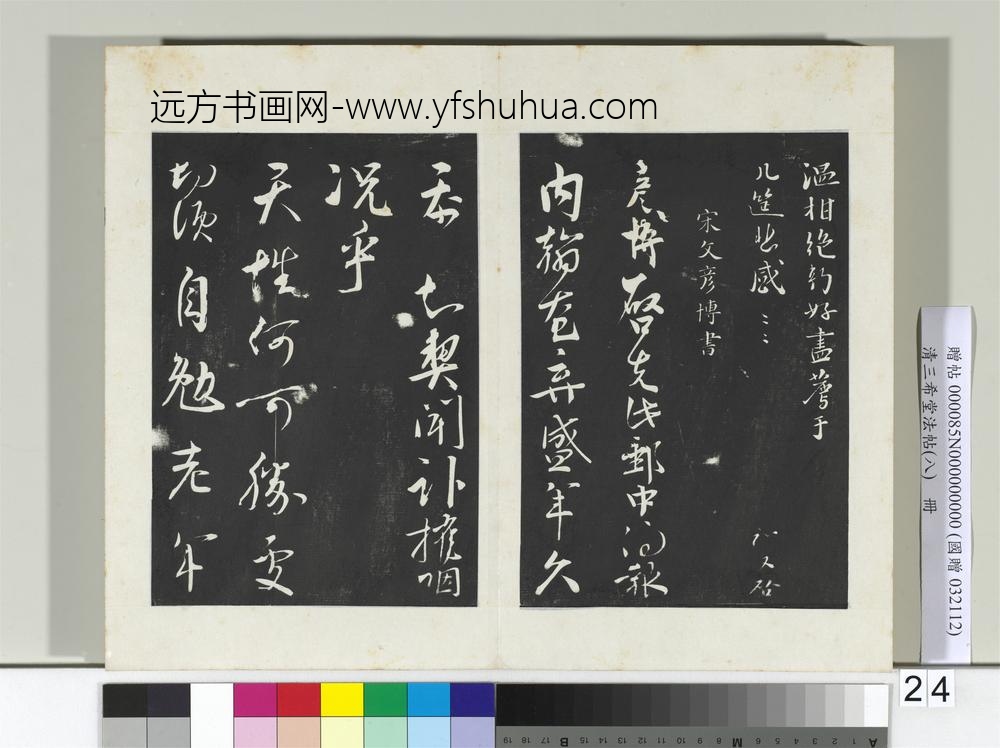 远方书画网-www.yfshuhua.com
溫柑絶新好盡薦于
几筵悲感〻〻
啓
宋文彦博書
彦博啓
郵中得報
内翰奄棄盛年久
忝 知契聞訃摧咽
況乎
天性何可勝處
切須自勉老年
贈帖 000085N000000000 (國贈 032112)
清三希堂法帖(八) 冊
24
A 1 2 3 4 5 6 M 8 9 10 11 12 13 14 15 B 17 18 19